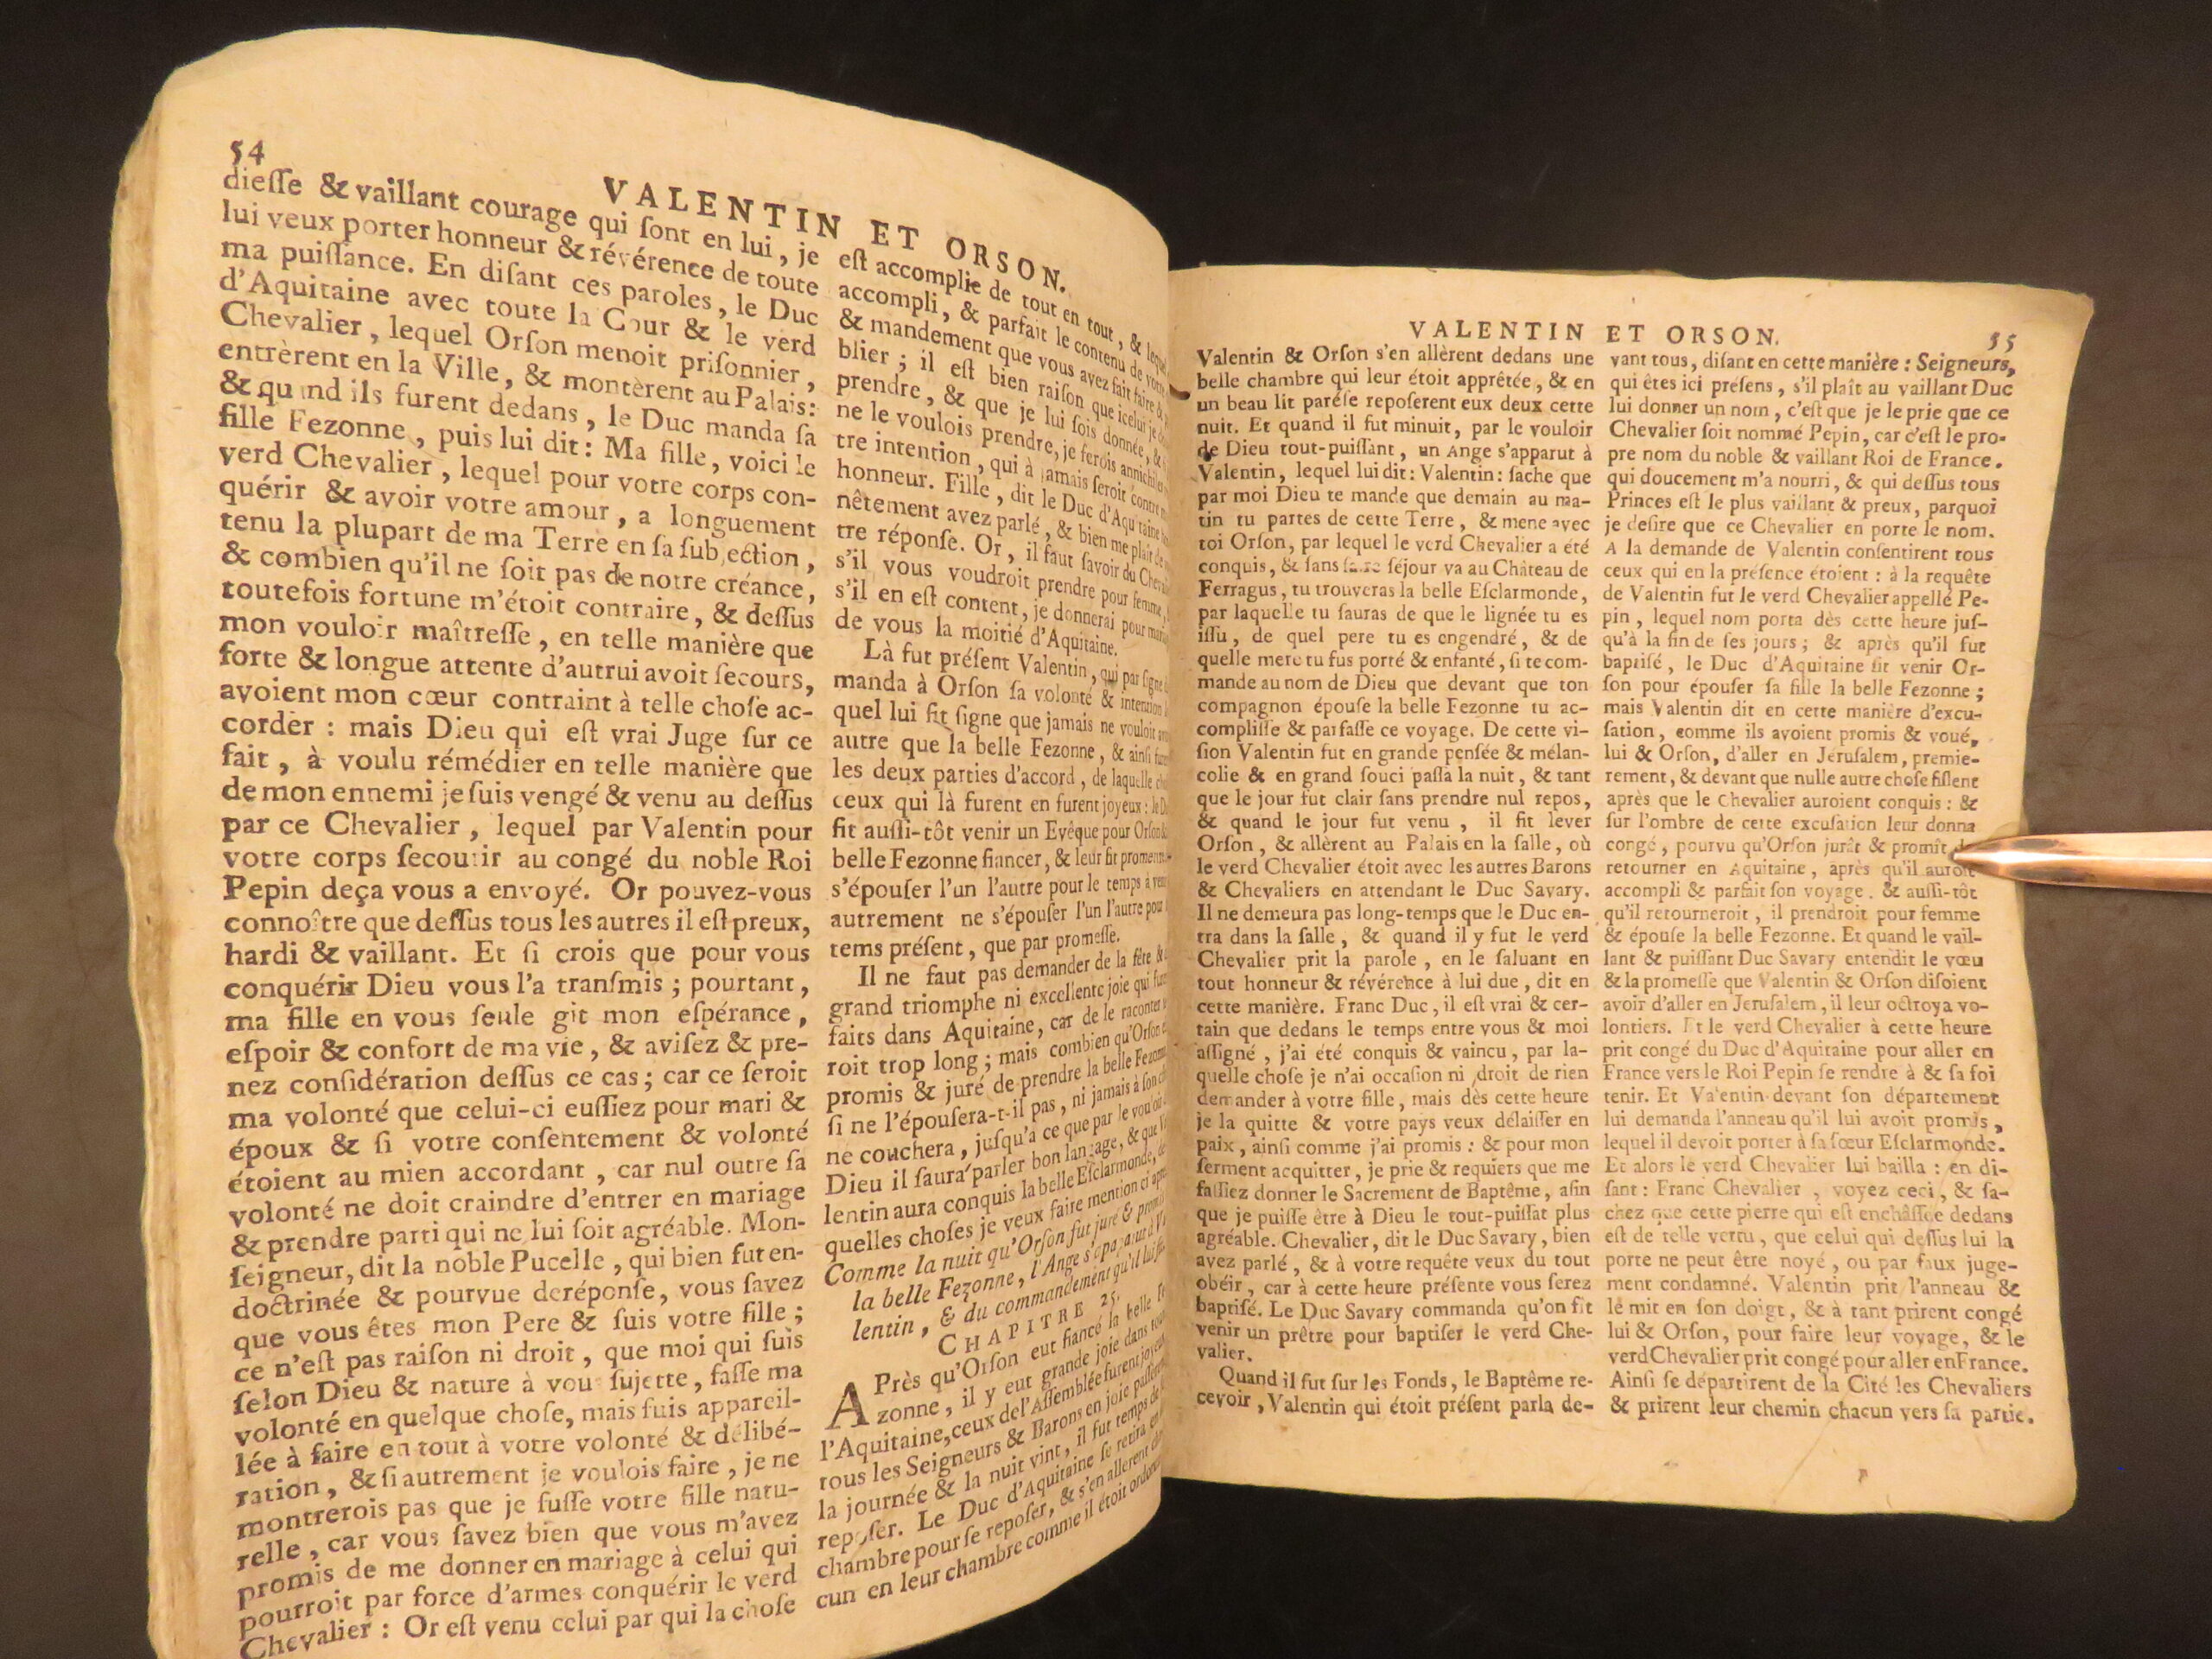 54
VALENTIN ET ORSON.
dieſſe & vaillant courage qui ſont en lui, je
lui veux porter honneur & révérence de toute
ma puiſſance. En diſant ces paroles, le Duc
d'Aquitaine avec toute la Cour & le verd
Chevalier, lequel Orſon menoit priſonnier,
entrèrent en la Ville, & montèrent au Palais:
& quand ils furent dedans, le Duc manda ſa
fille Fezonne, puis lui dit: Ma fille, voici le
verd Chevalier, lequel pour votre corps con-
quérir & avoir votre amour, a longuement
tenu la plupart de ma Terre en ſa ſubjection,
& combien qu'il ne ſoit pas de notre créance,
toutefois fortune m'étoit contraire, & deſſus
mon vouloir maîtreſſe, en telle manière que
forte & longue attente d'autrui avoit ſecours,
avoient mon cœur contraint à telle choſe ac-
corder : mais Dieu qui eſt vrai Juge ſur ce
fait, à voulu rémédier en telle manière que
de mon ennemi je ſuis vengé & venu au deſſus
par ce Chevalier, lequel par Valentin pour
votre corps ſecourir au congé du noble Roi
Pepin deça vous a envoyé. Or pouvez-vous
connoître que deſſus tous les autres il eſt preux,
hardi & vaillant. Et ſi crois que pour vous
conquérir Dieu vous l'a tranſmis ; pourtant,
ma fille en vous ſeule git mon eſpérance,
eſpoir & confort de ma vie, & aviſez & pre-
nez conſidération deſſus ce cas ; car ce ſeroit
ma volonté que celui-ci euſſiez pour mari &
époux & ſi votre conſentement & volonté
étoient au mien accordant, car nul outre ſa
volonté ne doit craindre d'entrer en mariage
& prendre parti qui ne lui ſoit agréable. Mon-
ſeigneur, dit la noble Pucelle, qui bien fut en-
doctrinée & pourvue de réponſe, vous ſavez
que vous êtes mon Pere & ſuis votre fille ;
ce n'eſt pas raiſon ni droit, que moi qui ſuis
ſelon Dieu & nature à vou ſujette, faſſe ma
volonté en quelque choſe, mais ſuis appareil-
lée à faire en tout à votre volonté & délibé-
ration, & ſi autrement je voulois faire, je ne
montrerois pas que je fuſſe votre fille natu-
relle, car vous ſavez bien que vous m'avez
promis de me donner en mariage à celui qui
pourroit par force d'armes conquérir le verd
Chevalier : Or eſt venu celui par qui la choſe
eſt accomplie de tout en tout, & lequel
accompli, & parfait le contenu de votre
& mandement que vous avez fait faire &
blier ; il eſt bien raiſon que icelui je
prendre, & que je lui ſois donnée, &
ne le voulois prendre, je ferois annichiler
tre intention, qui à jamais ſeroit contre
honneur. Fille, dit le Duc d'Aquitaine
nêtement avez parlé, & bien me plaît de
tre réponſe. Or, il faut ſavoir du Cheva
s'il vous voudroit prendre pour femme,
s'il en eſt content, je donnerai pour mari
de vous la moitié d'Aquitaine.
Là fut préſent Valentin, qui par ſigne
manda à Orſon ſa volonté & intention
quel lui fit ſigne que jamais ne vouloit
autre que la belle Fezonne, & ainſi furent
les deux parties d'accord, de laquelle
ceux qui là furent en furent joyeux : le D
fit auſſi-tôt venir un Evêque pour Orſon &
belle Fezonne fiancer, & leur fit promettre
s'épouſer l'un l'autre pour le temps à venir
autrement ne s'épouſer l'un l'autre pour
tems préſent, que par promeſſe.
Il ne faut pas demander de la fête &
grand triomphe ni excellente joie qui furent
faits dans Aquitaine, car de le raconter
roit trop long ; mais combien qu'Orſon
promis & juré de prendre la belle Fezonne
ſi ne l'épouſera-t-il pas, ni jamais à ſon
ne couchera, juſqu'à ce que par le vouloir
Dieu il ſaura parler bon langage, & que
lentin aura conquis la belle Eſclarmonde, de
quelles choſes je veux faire mention ci après
Comme la nuit qu'Orſon fut juré & promis
la belle Fezonne, l'Ange s'apparut à Va
lentin, & du commandement qu'il lui fit
CHAPITRE 25.
APrès qu'Orſon eut fiancé la belle Fe
zonne, il y eut grande joie dans toute
l'Aquitaine, ceux de l'Aſſemblée furent joyeux
tous les Seigneurs & Barons en joie paſſèrent
la journée & la nuit vint, il fut temps de
repoſer. Le Duc d'Aquitaine ſe retira en
chambre pour ſe repoſer, & s'en allerent
cun en leur chambre comme il étoit ordonné
VALENTIN ET ORSON.
55
Valentin & Orſon s'en allèrent dedans une
belle chambre qui leur étoit apprêtée, & en
un beau lit paréſe repoſerent eux deux cette
nuit. Et quand il fut minuit, par le vouloir
de Dieu tout-puiſſant, un Ange s'apparut à
Valentin, lequel lui dit : Valentin : ſache que
par moi Dieu te mande que demain au ma-
tin tu partes de cette Terre, & mene avec
toi Orſon, par lequel le verd Chevalier a été
conquis, & ſans faire ſéjour va au Château de
Ferragus, tu trouveras la belle Eſclarmonde,
par laquelle tu ſauras de que le lignée tu es
iſſu, de quel pere tu es engendré, & de
quelle mere tu fus porté & enfanté, ſi te com-
mande au nom de Dieu que devant que ton
compagnon épouſe la belle Fezonne tu ac-
compliſſe & parfaſſe ce voyage. De cette vi-
ſion Valentin fut en grande penſée & mélan-
colie & en grand ſouci paſſa la nuit, & tant
que le jour fut clair ſans prendre nul repos,
& quand le jour fut venu, il fit lever
Orſon, & allèrent au Palais en la ſalle, où
le verd Chevalier étoit avec les autres Barons
& Chevaliers en attendant le Duc Savary.
Il ne demeura pas long-temps que le Duc en-
tra dans la ſalle, & quand il y fut le verd
Chevalier prit la parole, en le ſaluant en
tout honneur & révérence à lui due, dit en
cette manière. Franc Duc, il eſt vrai & cer-
tain que dedans le temps entre vous & moi
aſſigné, j'ai été conquis & vaincu, par la-
quelle choſe je n'ai occaſion ni droit de rien
demander à votre fille, mais dès cette heure
je la quitte & votre pays veux délaiſſer en
paix, ainſi comme j'ai promis : & pour mon
ſerment acquitter, je prie & requiers que me
faſſiez donner le Sacrement de Baptême, afin
que je puiſſe être à Dieu le tout-puiſſat plus
agréable. Chevalier, dit le Duc Savary, bien
avez parlé, & à votre requête veux du tout
obéir, car à cette heure préſente vous ſerez
baptiſé. Le Duc Savary commanda qu'on fit
venir un prêtre pour baptiſer le verd Che-
valier.
Quand il fut ſur les Fonds, le Baptême re-
cevoir, Valentin qui étoit préſent parla de-
vant tous, diſant en cette manière : Seigneurs,
qui êtes ici préſens, s'il plaît au vaillant Duc
lui donner un nom, c'eſt que je le prie que ce
Chevalier ſoit nommé Pepin, car c'eſt le pro-
pre nom du noble & vaillant Roi de France.
qui doucement m'a nourri, & qui deſſus tous
Princes eſt le plus vaillant & preux, parquoi
je deſire que ce Chevalier en porte le nom.
A la demande de Valentin conſentirent tous
ceux qui en la préſence étoient : à la requête
de Valentin fut le verd Chevalier appellé Pe-
pin, lequel nom porta dès cette heure juſ-
qu'à la fin de ſes jours ; & après qu'il fut
baptiſé, le Duc d'Aquitaine fit venir Or-
ſon pour épouſer ſa fille la belle Fezonne ;
mais Valentin dit en cette manière d'excu-
ſation, comme ils avoient promis & voué,
lui & Orſon, d'aller en Jéruſalem, premie-
rement, & devant que nulle autre choſe fiſſent
après que le Chevalier auroient conquis : &
ſur l'ombre de cette excuſation leur donna
congé, pourvu qu'Orſon jurât & promît de
retourner en Aquitaine, après qu'il auroit
accompli & parfait ſon voyage. & auſſi-tôt
qu'il retourneroit, il prendroit pour femme
& épouſe la belle Fezonne. Et quand le vail-
lant & puiſſant Duc Savary entendit le vœu
& la promeſſe que Valentin & Orſon diſoient
avoir d'aller en Jeruſalem, il leur octroya vo-
lontiers. Et le verd Chevalier à cette heure
prit congé du Duc d'Aquitaine pour aller en
France vers le Roi Pepin ſe rendre à & ſa foi
tenir. Et Valentin devant ſon département
lui demanda l'anneau qu'il lui avoit promis,
lequel il devoit porter à ſa ſœur Eſclarmonde.
Et alors le verd Chevalier lui bailla : en di-
ſant : Franc Chevalier, voyez ceci, & ſa-
chez que cette pierre qui eſt enchâſſée dedans
eſt de telle vertu, que celui qui deſſus lui la
porte ne peut être noyé, ou par faux juge-
ment condamné. Valentin prit l'anneau &
le mit en ſon doigt, & à tant prirent congé
lui & Orſon, pour faire leur voyage, & le
verd Chevalier prit congé pour aller en France.
Ainſi ſe départirent de la Cité les Chevaliers
& prirent leur chemin chacun vers ſa partie.